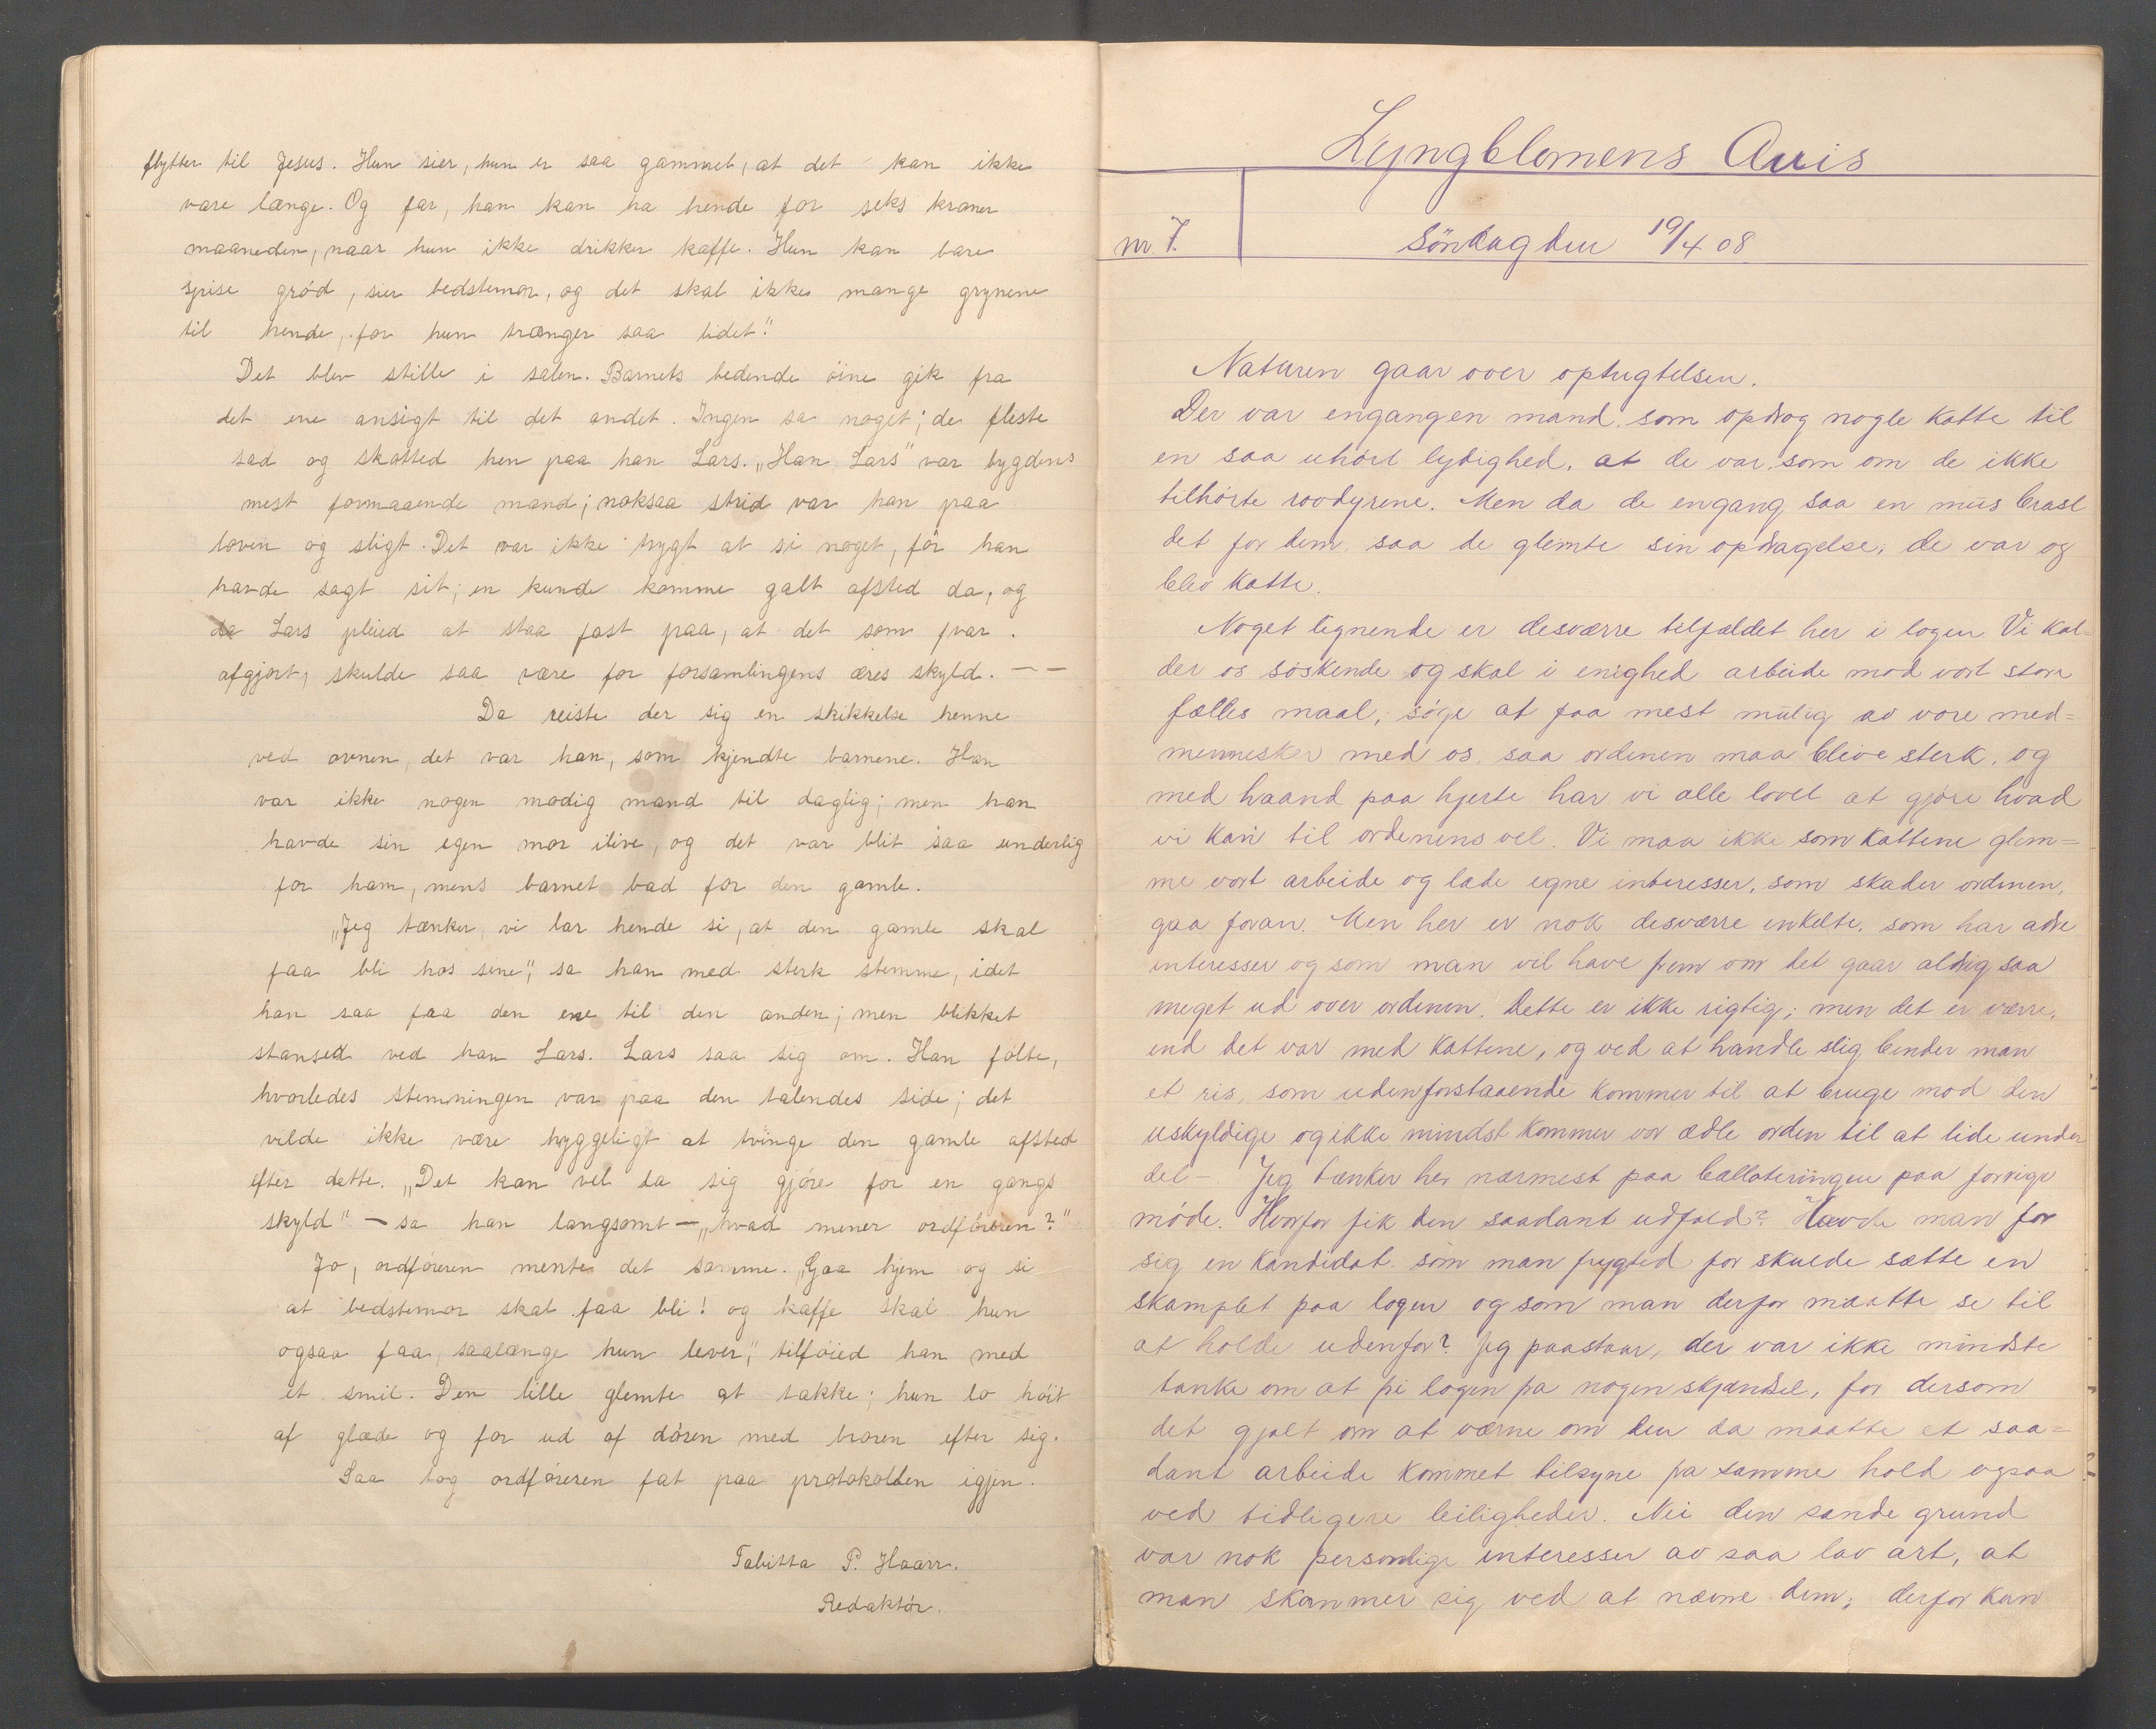 flytter til Jesus. Hun sier, hun er saa gammel, at det kan ikke
vare længe. Og far, han kan ha hende for seks kroner
maaneden, naar hun ikke drikker kaffe. Hun kan bare
spise grød, sier bedstemor, og det skal ikke mange grynene
til hende, for hun trænger saa lidet."
Det blev stille i salen. Barnets bedende öine gik fra
det ene ansigt til det andet. Ingen sa noget; de fleste
sad og skotted hen paa han Lars. „Han Lars" var bygdens
mest formaaende mand; noksaa strid var han paa
loven og sligt. Det var ikke trygt at si noget, för han
havde sagt sit; en kunde komme galt afsted da, og
da Lars pleied at staa fast paa, at det som var
afgjort, skulde saa være for forsamlingens æres skyld. — —
Da reiste der sig en skikkelse henne
ved ovnen, det var han, som kjendte barnene. Han
var ikke nogen modig mand til daglig; men han
havde sin egen mor ilive, og det var blit saa underlig
for ham, mens barnet bad for den gamle.
„Jeg tænker, vi lar hende si, at den gamle skal
faa bli hos sine", sa han med sterk stemme, idet
han saa fra den ene til den anden; men blikket
stansed ved han Lars. Lars saa sig om. Han fölte,
hvorledes stemningen var paa den talendes side; det
vilde ikke være hyggeligt at tvinge den gamle afsted
efter dette. „Det kan vel la sig gjöre for en gangs
skyld" — sa han langsomt — „hvad mener ordföreren?"
Jo, ordföreren mente det samme. „Gaa hjem og si
at bedstemor skal faa bli! og kaffe skal hun
ogsaa faa, saalænge hun lever," tilföied han med
et smil. Den lille glemte at takke; hun lo höit
af glæde og for ud af dören med broren efter sig.
Saa tog ordföreren fat paa protokollen igjen.
Tabitta P. Haarr.
Redaktör.
Lyngblomens Avis
nr. 7.
Söndag den 19/4 08
Naturen gaar over optugtelsen.
Der var engang en mand, som opdrog nogle katte til
en saa uhört lydighed, at de var, som om de ikke
tilhörte rovdyrene. Men da de engang saa en mus brast
det for dem, saa de glemte sin opdragelse, de var og
blev katte.
Noget lignende er desværre tilfældet her i logen. Vi kal-
der os söskende og skal i enighed arbeide mod vort store
fælles maal, söge at faa mest mulig av vore med=
mennesker med os, saa ordenen maa blive sterk, og
med haand paa hjerte har vi alle lovet at gjöre hvad
vi kan til ordenens vel. Vi maa ikke som kattene glem=
me vort arbeide og lade egne interesser, som skader ordenen,
gaa foran. Men her er nok desværre enkelte, som har andre
interesser og som man vil have frem om det gaar aldrig saa
meget ud over ordenen. Dette er ikke rigtig; men det er værre,
end det var med kattene, og ved at handle slig binder man
et ris, som udenforstaaende kommer til at bruge mod den
uskyldige og ikke mindst kommer vor ædle orden til at lide under
det – Jeg tænker her nærmest paa balloteringen paa forrige
möde. Hvorfor fik den saadant udfald? Havde man for
sig en kandidat som man frygted for skulde sætte en
skamplet paa logen og som man derfor maatte se til
at holde udenfor? Jeg paastaar, der var ikke mindste
tanke om at fri logen fra nogen skjændsel, for dersom
det gjalt om at værne om den da maatte et saa=
dant arbeide kommet tilsyne fra samme hold ogsaa
ved tidligere leiligheder. Nei den sande grund
var nok personlige interesser av saa lav art, at
man skammer sig ved at nævne dem; derfor kan